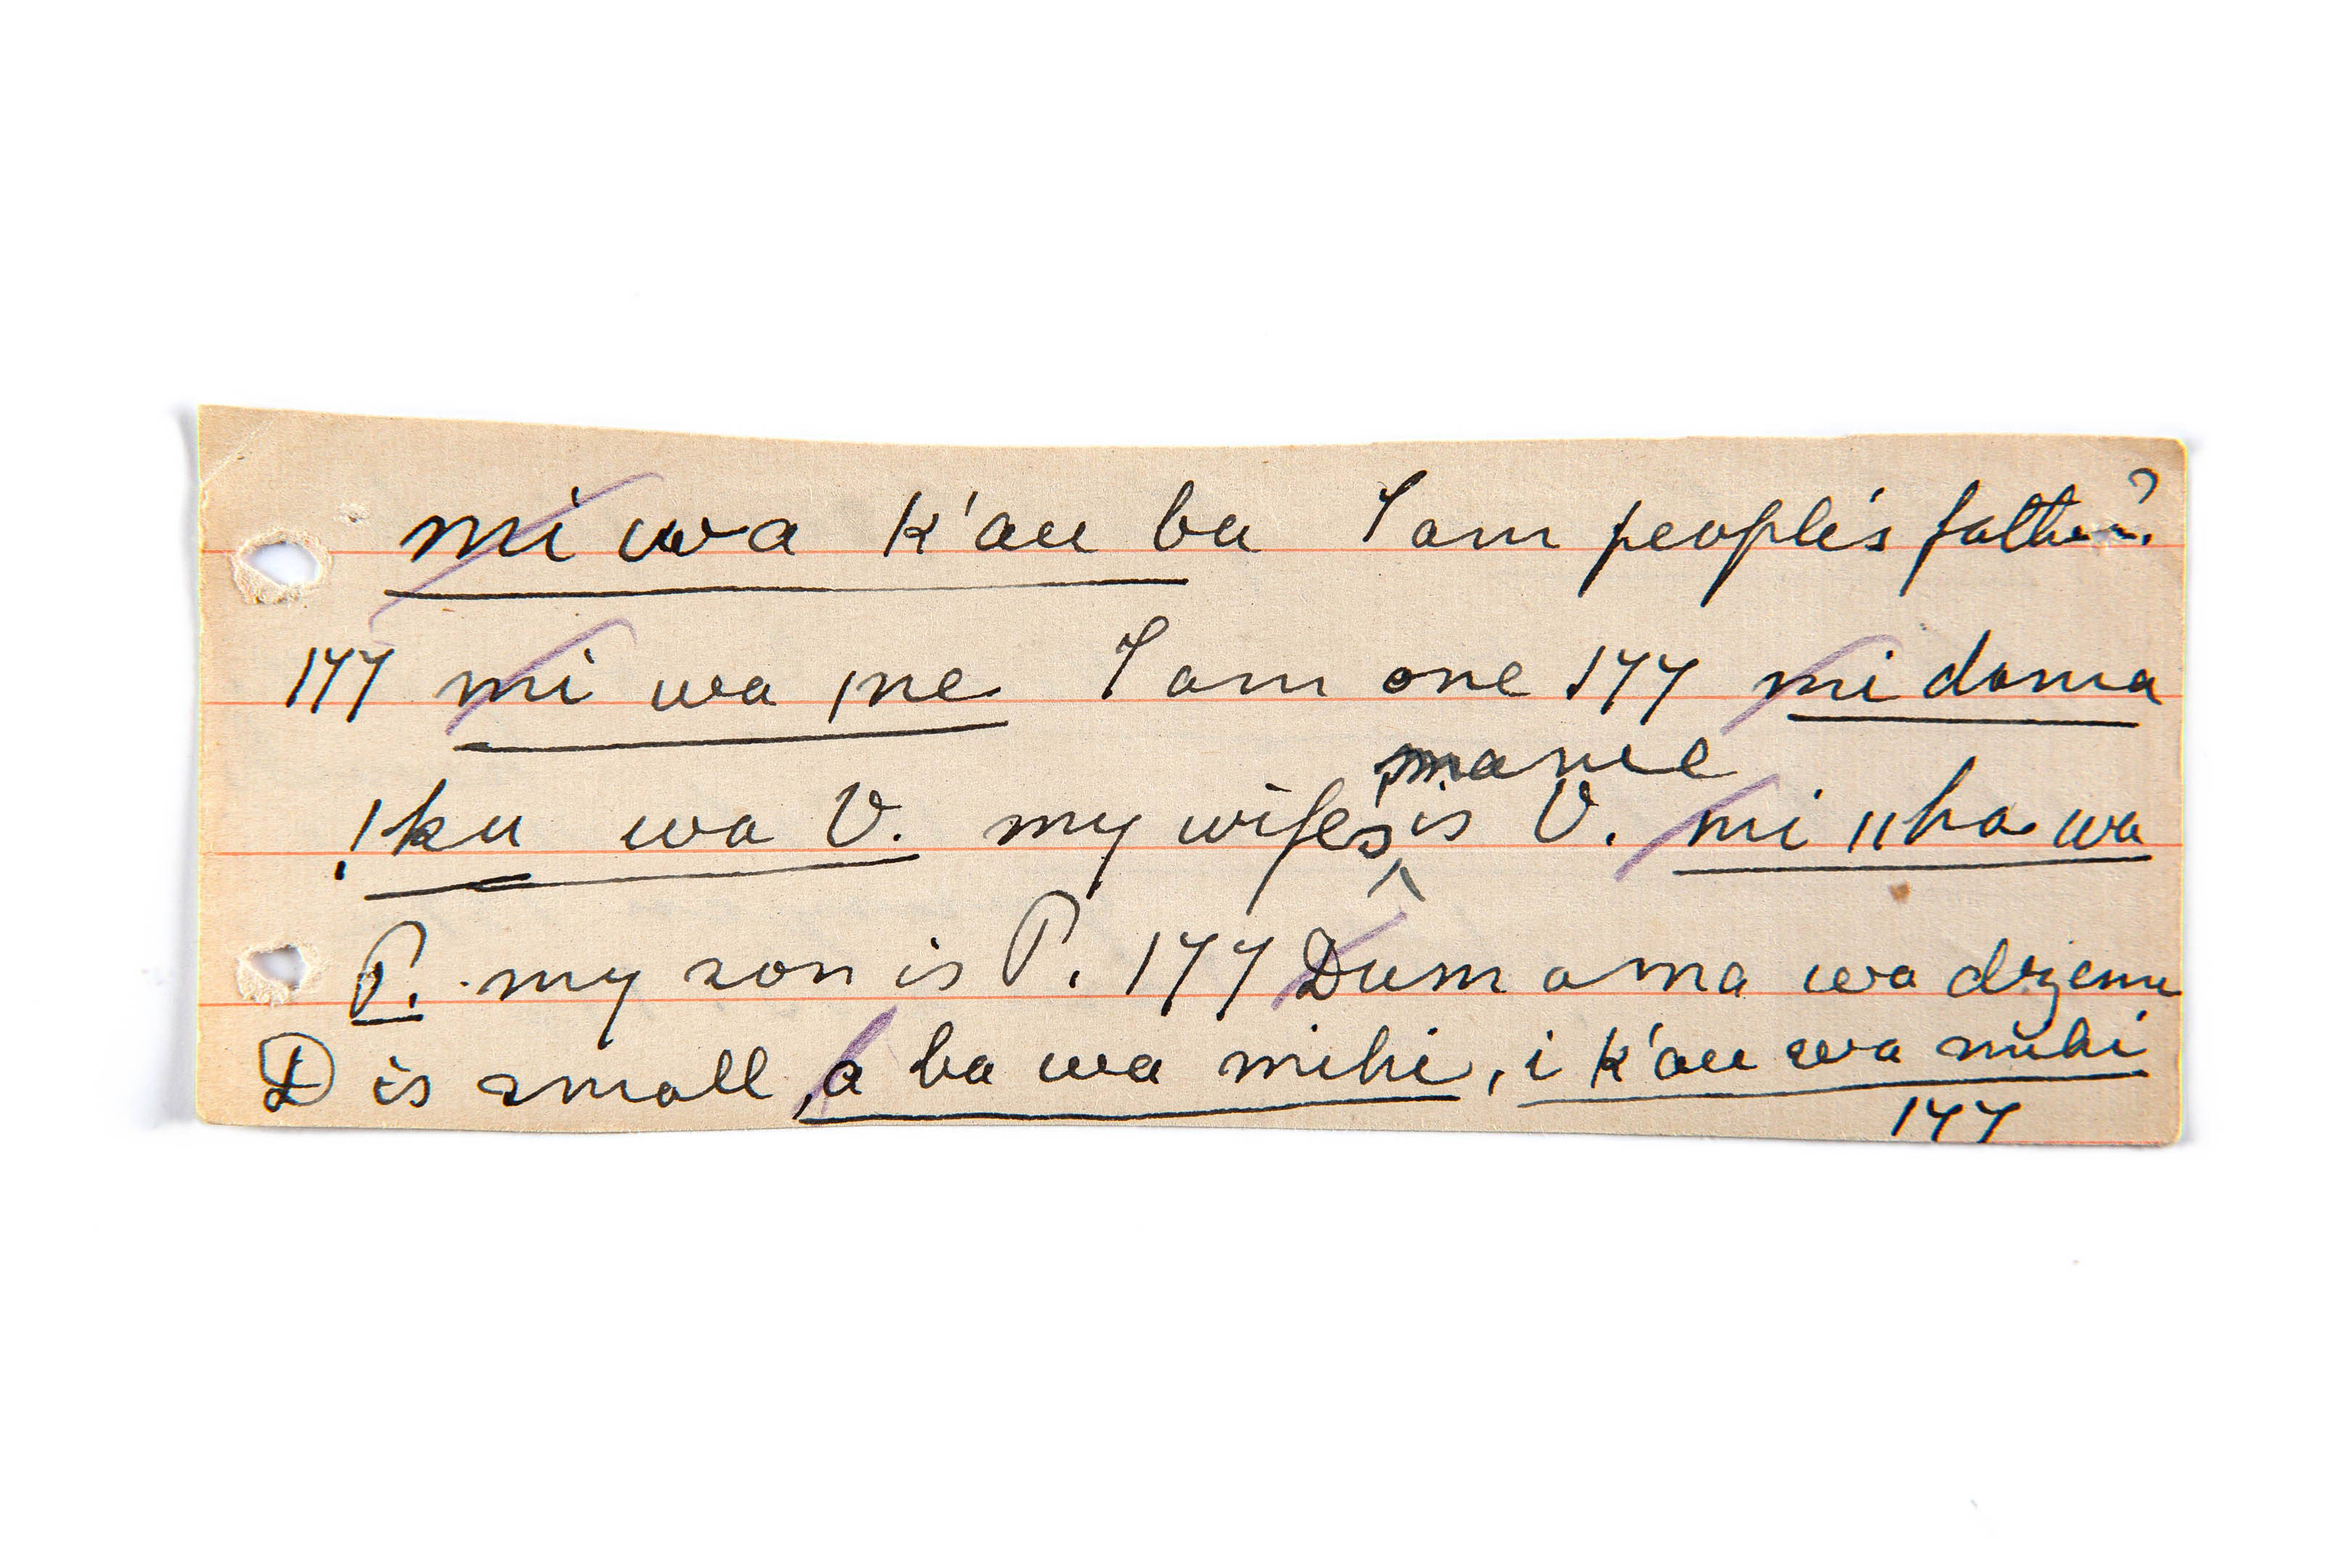 mi wa k'au ba I am people's father?
177 mi wa /ne I am one 177 mi dama
name
!ku wa V. my wife's is V. mi //ha wa
P. my son is P. 177 Dum a ma wa dzema
D is small, a ba wa mihi, i k'au wa mihi
177